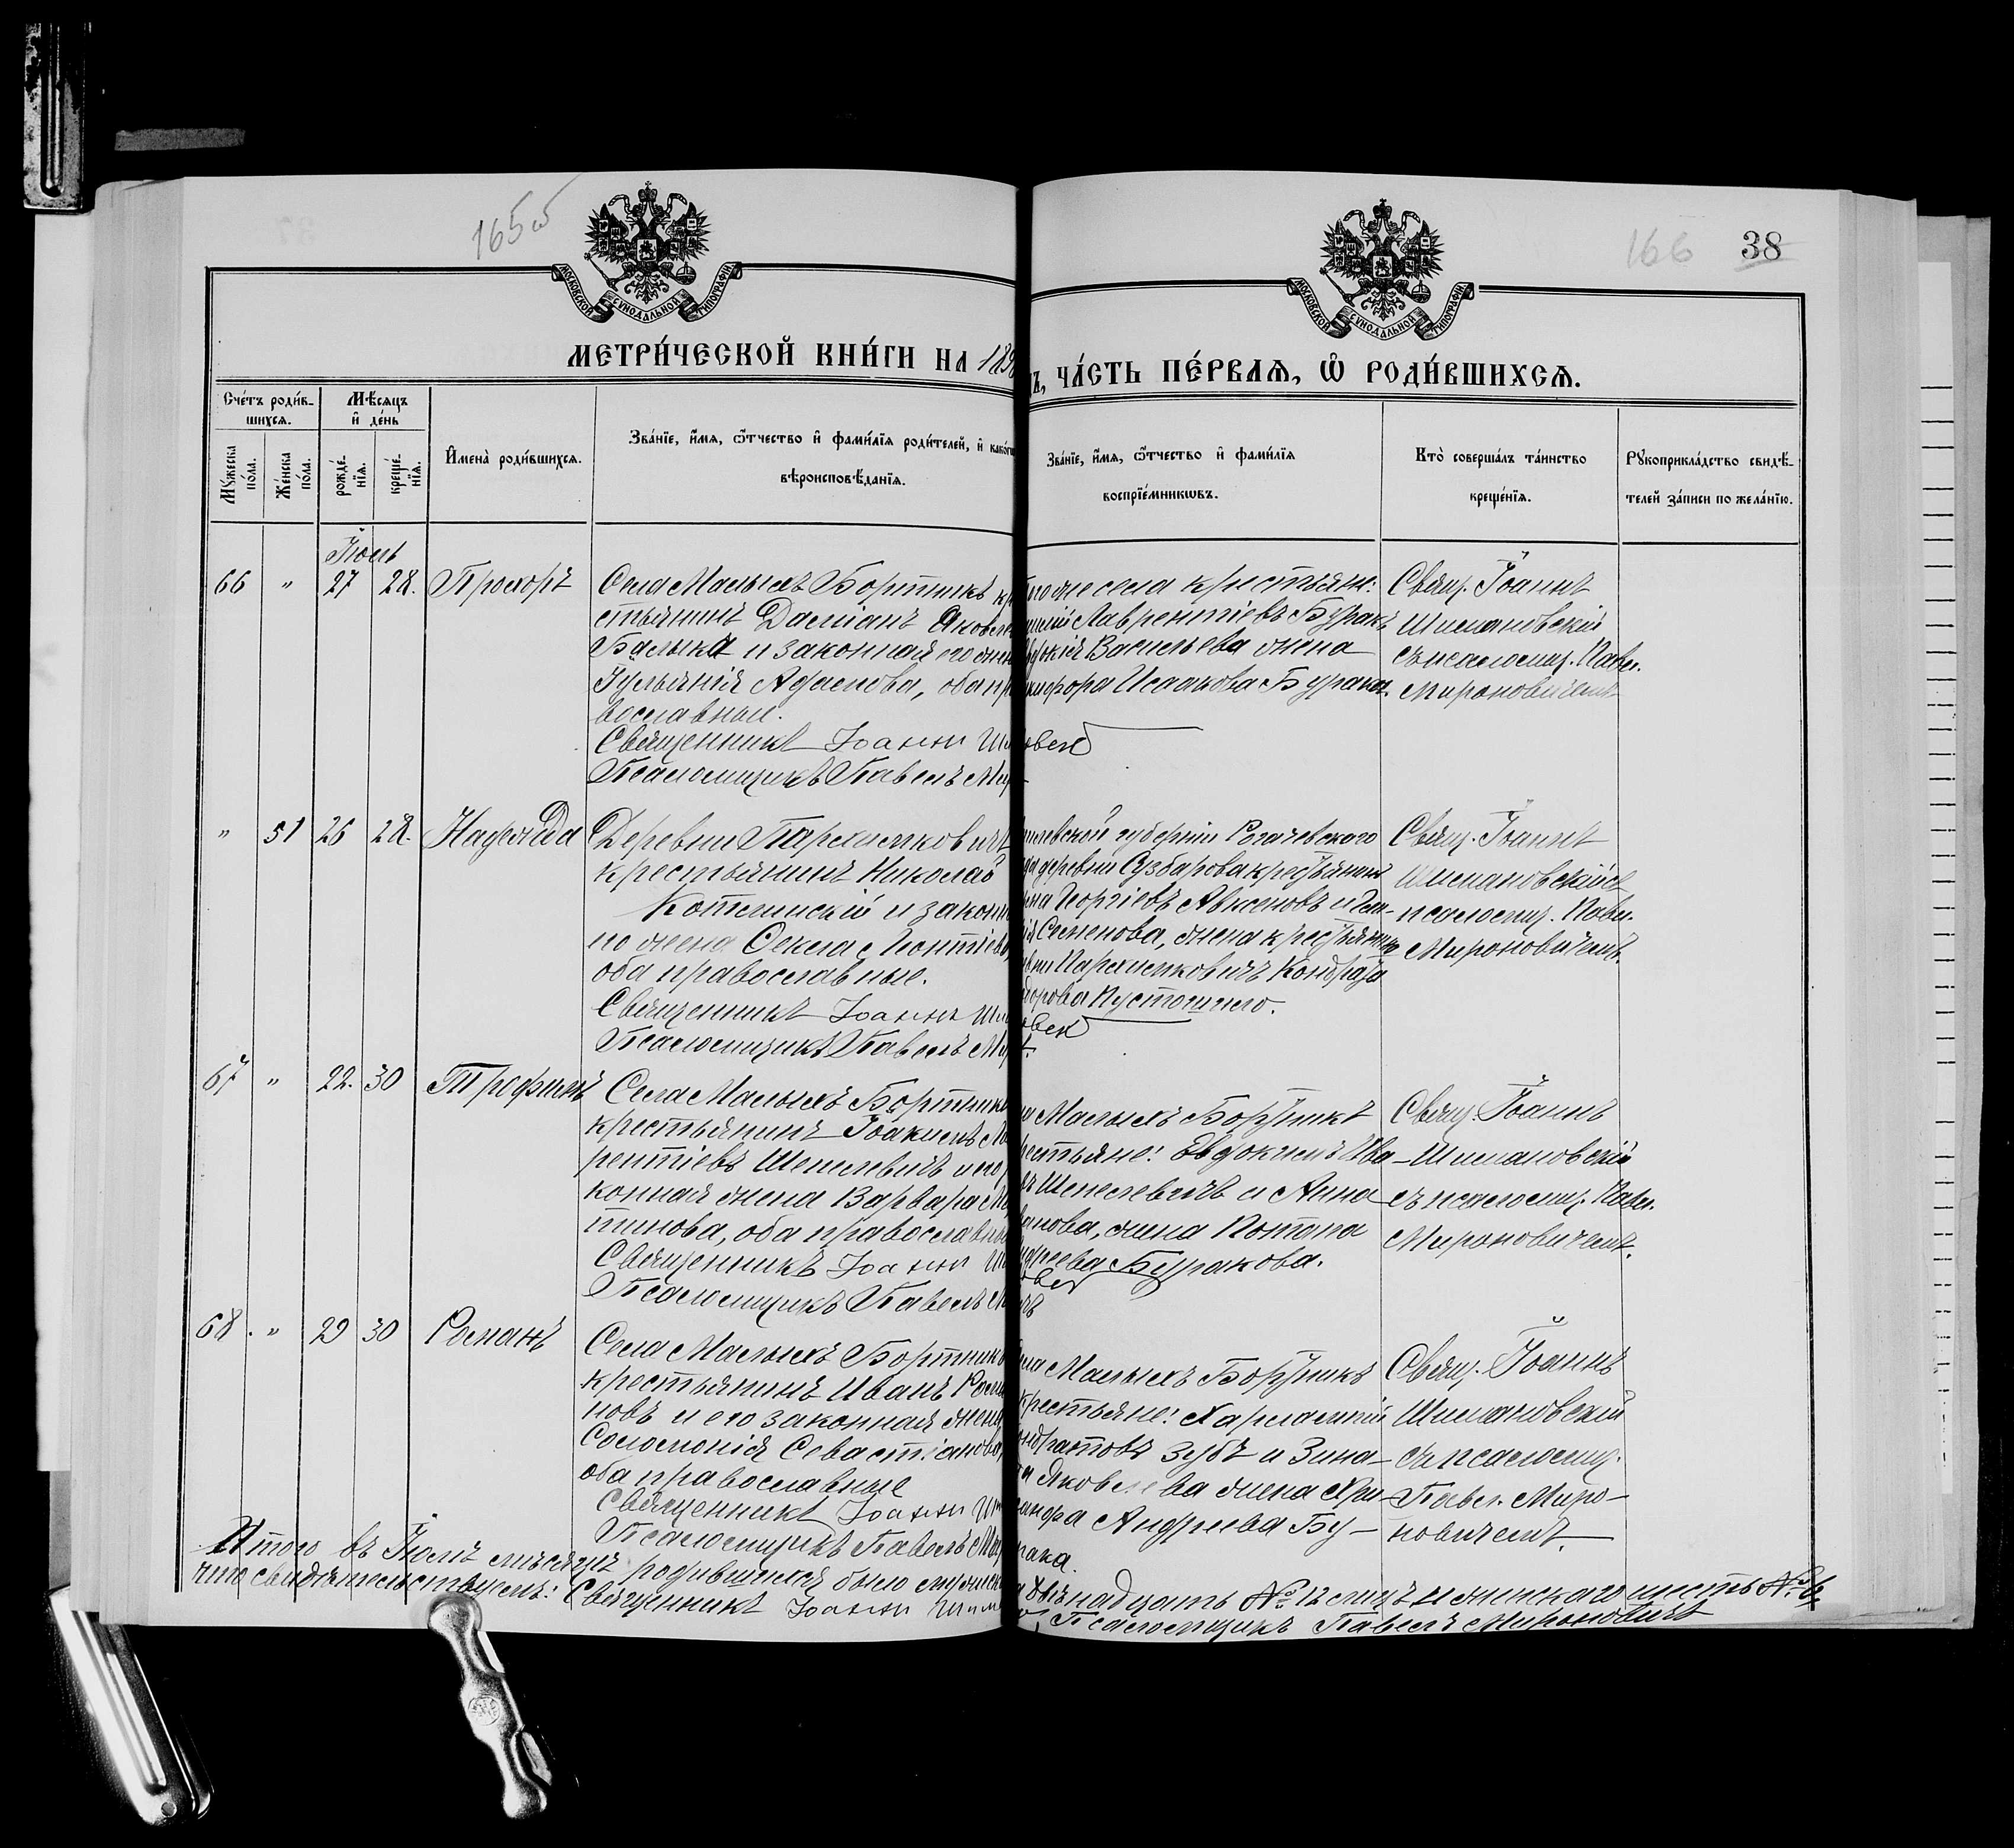 165об
166 38
МОСКОВСКОЙ СѴНОДАЛЬНОЙ ТИПОГРАФІИ
МОСКОВСКОЙ СѴНОДАЛЬНОЙ ТИПОГРАФІИ
МЕТРИ́ЧЕСКОЙ КНИ́ГИ НА 189
ЧА́СТЬ ПЕ́РВАѦ, Ѡ РОДИ́ВШИХСѦ.
Сче́тъ роди́в-
шихся.
Мѣсяцъ
и де́нь
Му́жеска по́ла.
Же́нска по́ла.
рожде́-
нїя.
креще́-
нїя.
Имена̀ роди́вшихся.
Зва́нїе, и́мя, ѻ́тчество и фами́лїя роди́телей, и како́гѡ
вѣроисповѣ́данїя.
Зва́нїе, и́мя, ѻ́тчество и фами́лїя
воспрїе́мникѡвъ.
Кто̀ соверша́лъ та́инство
креще́нїя.
Рукоприкла́дство свидѣ́-
телей за́писи по жела́нїю.
Іюль
66 " 27 28. Прохоръ
Села Малыхъ Бортникъ кр
стьянинъ Даміанъ Яковле
Балыка и законная его жен
Іульянія Адамова, оба пр
вославные.
Священникъ Іоаннъ Ши
Псаломщикъ Павелъ Ми
тогоже села крестьяне:
Лаврентіевъ Буракъ
Васильева жена
Исаакова Бурака.
Свящ. Іоаннъ
Шимановскій
съ псаломщ. Павл.
Мироновичемъ
" 51 26 28. Надежда
Деревни Пархимковичъ
крестьянинъ Николай
Котлинскій и законн
его жена Ѳекла Леонтіева
оба православные.
Священникъ Іоаннъ Ши
Псаломщикъ Павелъ Ми
илевской губерніи Рогачевского
деревни крестьянинъ
Георгіевъ Авксеновъ и
Семенова, жена крестьянина
вни Пархимковичъ Кондрата
дорова Пустошнего.
Свящ. Іоаннъ
Шимановскій съ
псаломщ. Павл.
Мироновичемъ.
67 " 22. 30 Трофимъ
Села Малыхъ Бортник
крестьянинъ Іоакимъ Ла
рентіевъ Шепелевичъ и его
конная жена Варвара Ма
тинова, оба православны
Священникъ Іоаннъ Ши
Псаломщикъ Павелъ Ми
Малыхъ Бортникъ
рестьяне: Евдокимъ Ива-
Шепелевичъ и Анна
ванова, жена Потапа
ндреева Буракова.
Свящ. Іоаннъ
Шимановскій
съ псаломщ. Павл.
Мироновичемъ.
68. " 29 30 Романъ
Села Малыхъ Бортник
крестьянинъ Иванъ Рома
новъ и его законная жена
Соломонія Севастіанова,
оба православные
Священникъ Іоаннъ Ши
Псаломщикъ Павелъ Ми
ела Малыхъ Бортникъ
крестьяне: Харлампій
ондратовъ Зубъ и Зина-
Яковлева жена Хри-
санфа Андреева Бу-
рака.
Свящ. Іоаннъ
Шимановскій
съ псаломщ.
Павл. Миро-
новичемъ.
Итого въ Іюлѣ мѣсяцѣ родившихся было мужеск
двѣнадцать № 12 лицъ и женского шесть № 6
что свидѣтельствуемъ: Священникъ Іоаннъ Шим
Псаломщикъ Павелъ Мироновичъ